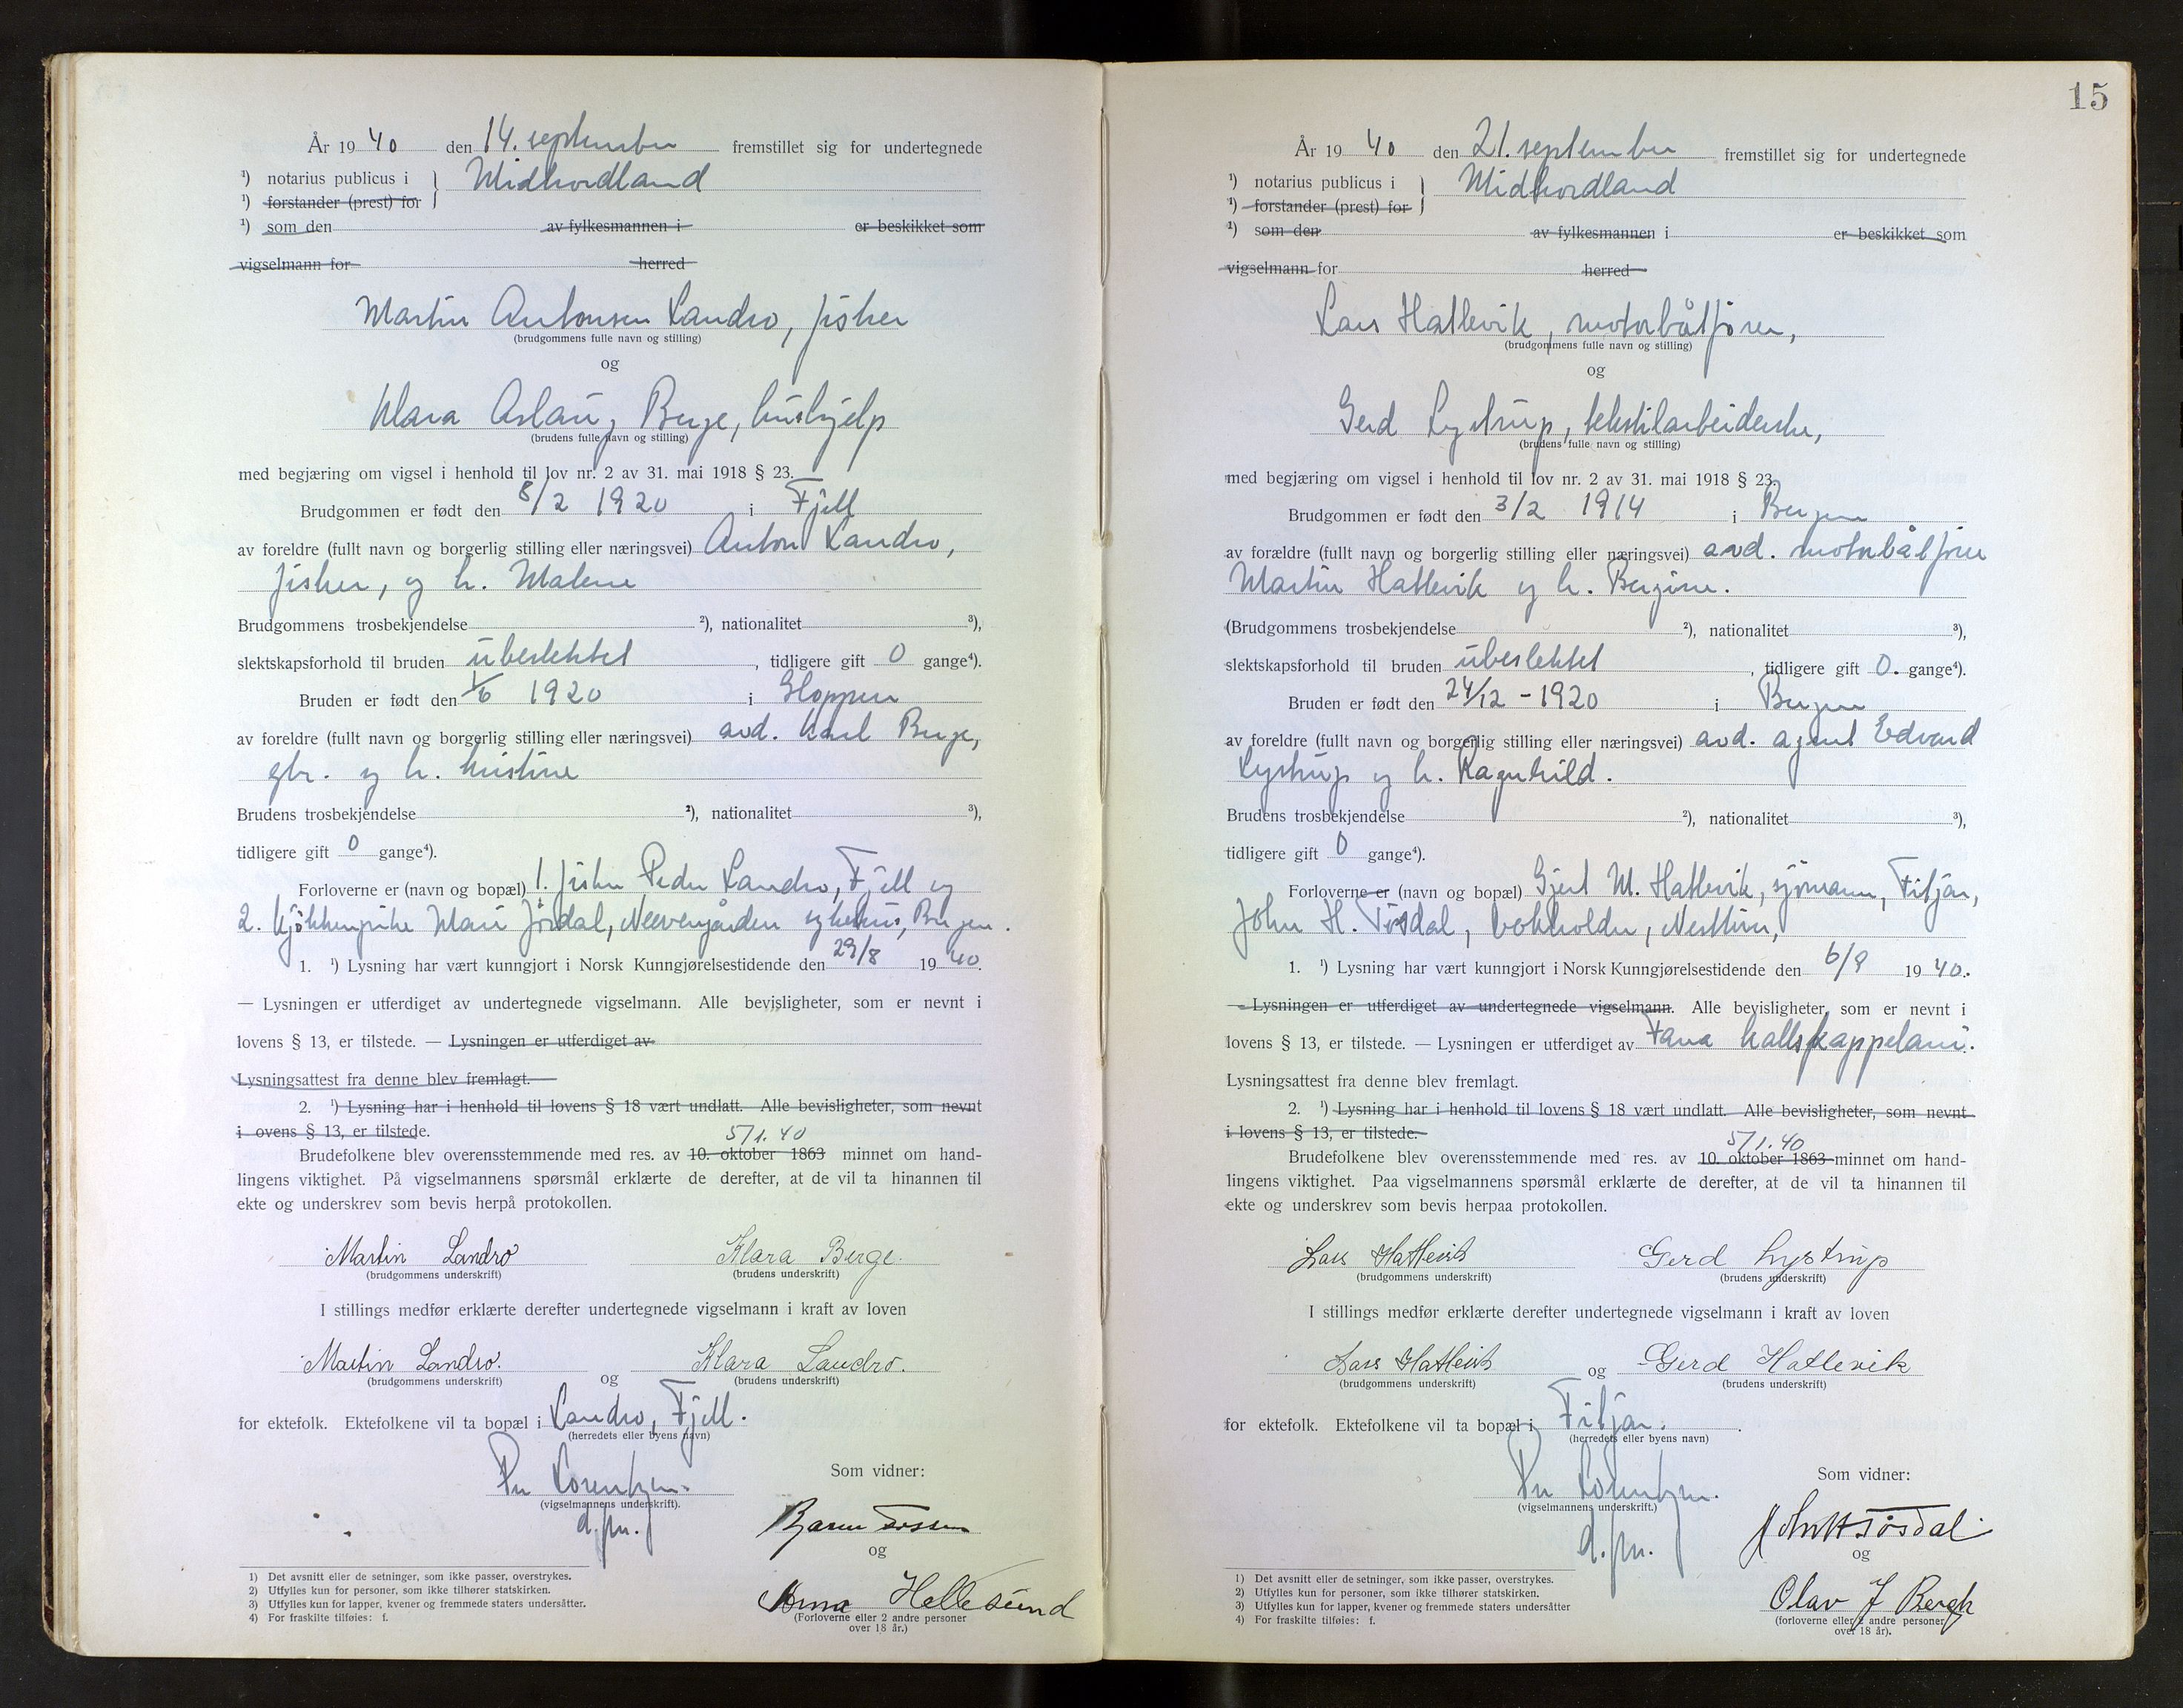 År 19 40 den 14. september fremstillet sig for undertegnede
¹) notarius publicus i } Midhordland
¹) forstander (prest) for
¹) som den av fylkesmannen i er beskikket som
vigselmann for herred
Martin Antonsen Landro, fisker
(brudgommens fulle navn og stilling)
og
Klara Aslaug Berge, hushjelp
(brudens fulle navn og stilling)
med begjæring om vigsel i henhold til lov nr. 2 av 31. mai 1918 § 23.
Brudgommen er født den 8/2 1920 i Fjell
av foreldre (fullt navn og borgerlig stilling eller næringsvei) Anton Landro,
fisker, og h. Malene
Brudgommens trosbekjendelse ²), nationalitet ³),
slektskapsforhold til bruden ubeslektet, tidligere gift 0 gange⁴).
Bruden er født den 1/6 1920 i Gloppen
av foreldre (fullt navn og borgerlig stilling eller næringsvei) avd. Karl Berge,
gbr. og h. Kristine
Brudens trosbekjendelse ²), nationalitet ³),
tidligere gift 0 gange⁴).
Forloverne er (navn og bopæl) 1. fisker Peder Landro, Fjell og
2. Kjøkkenpike Mari Jordal, Neevengården sykehus, Bergen.
1. ¹) Lysning har vært kunngjort i Norsk Kunngjørelsestidende den 29/8 19 40.
— Lysningen er utferdiget av undertegnede vigselmann. Alle bevisligheter, som er nevnt i
lovens § 13, er tilstede. — Lysningen er utferdiget av
Lysningsattest fra denne blev fremlagt.
2. ¹) Lysning har i henhold til lovens § 18 vært undlatt. Alle bevisligheter, som nevnt
i ovens § 13, er tilstede.
5/1. 40
Brudefolkene blev overensstemmende med res. av 10. oktober 1863 minnet om hand-
lingens viktighet. På vigselmannens spørsmål erklærte de derefter, at de vil ta hinannen til
ekte og underskrev som bevis herpå protokollen.
Martin Landro Klara Berge.
(brudgommens underskrift) (brudens underskrift)
I stillings medfør erklærte derefter undertegnede vigselmann i kraft av loven
Martin Landro. og Klara Landro.
(brudgommens underskrift) (brudens underskrift)
for ektefolk. Ektefolkene vil ta bopæl i Landro, Fjell.
(herredets eller byens navn)
Per Lorentzen.
(vigselmannens underskrift).
d.fm.
Som vidner:
og
Anna Hellesund
(Forloverne eller 2 andre personer
over 18 år.)
1) Det avsnitt eller de setninger, som ikke passer, overstrykes.
2) Utfylles kun for personer, som ikke tilhører statskirken.
3) Utfylles kun for lapper, kvener og fremmede staters undersåtter.
4) For fraskilte tilføies: f.
15
År 19 40 den 21. september fremstillet sig for undertegnede
¹) notarius publicus i } Midhordland
¹) forstander (prest) for
¹) som den av fylkesmannen i er beskikket som
vigselmann for herred
Lars Hatlevik, motorbåtfører,
(brudgommens fulle navn og stilling)
og
Gerd Lystrup, tekstilarbeiderske,
(brudens fulle navn og stilling)
med begjæring om vigsel i henhold til lov nr. 2 av 31. mai 1918 § 23.
Brudgommen er født den 3/2 1914 i Bergen
av forældre (fullt navn og borgerlig stilling eller næringsvei) avd. motorbåtfører
Martin Hatlevik og h. Bergine.
(Brudgommens trosbekjendelse ²), nationalitet ³),
slektskapsforhold til bruden ubeslektet, tidligere gift 0. gange⁴).
Bruden er født den 24/12 - 1920 i Bergen
av foreldre (fullt navn og borgerlig stilling eller næringsvei) avd. agent Edvard
Lystrup og h. Ragnhild.
Brudens trosbekjendelse ²), nationalitet ³),
tidligere gift 0 gange⁴).
Forloverne er (navn og bopæl) Gjert M. Hatlevik, sjømann, Fitjar,
John H. Tøsdal, bokholder, Nesttun,
1. ¹) Lysning har vært kunngjort i Norsk Kunngjørelsestidende den 6/9 19 40.
— Lysningen er utferdiget av undertegnede vigselmann. Alle bevisligheter, som er nevnt i
lovens § 13, er tilstede. — Lysningen er utferdiget av Fana kallskappelani.
Lysningsattest fra denne blev fremlagt.
2. ¹) Lysning har i henhold til lovens § 18 vært undlatt. Alle bevisligheter, som nevnt
i lovens § 13, er tilstede.
5/1. 40
Brudefolkene blev overensstemmende med res. av 10. oktober 1863 minnet om hand-
lingens viktighet. Paa vigselmannens spørsmål erklærte de derefter, at de vil ta hinannen til
ekte og underskrev som bevis herpaa protokollen.
Lars Hatlevik Gerd Lystrup
(brudgommens underskrift) (brudens underskrift)
I stillings medfør erklærte derefter undertegnede vigselmann i kraft av loven
Lars Hatlevik og Gerd Hatlevik
(brudgommens underskrift) (brudens underskrift)
for ektefolk. Ektefolkene vil ta bopæl i Fitjar.
(herredets eller byens navn)
Per Lorentzen.
(vigselmannens underskrift.)
d.fm.
Som vidner:
John H Tøsdal
og
Olav J Bergh
(forloverne eller 2 andre personer
over 18 år).
1) Det avsnitt eller de setninger, som ikke passer, overstrykes.
2) Utfylles kun for personer, som ikke tilhører statskirken.
3) Utfylles kun for lapper, kvener og fremmede staters undersåtter
4) For fraskilte tilføies: f.